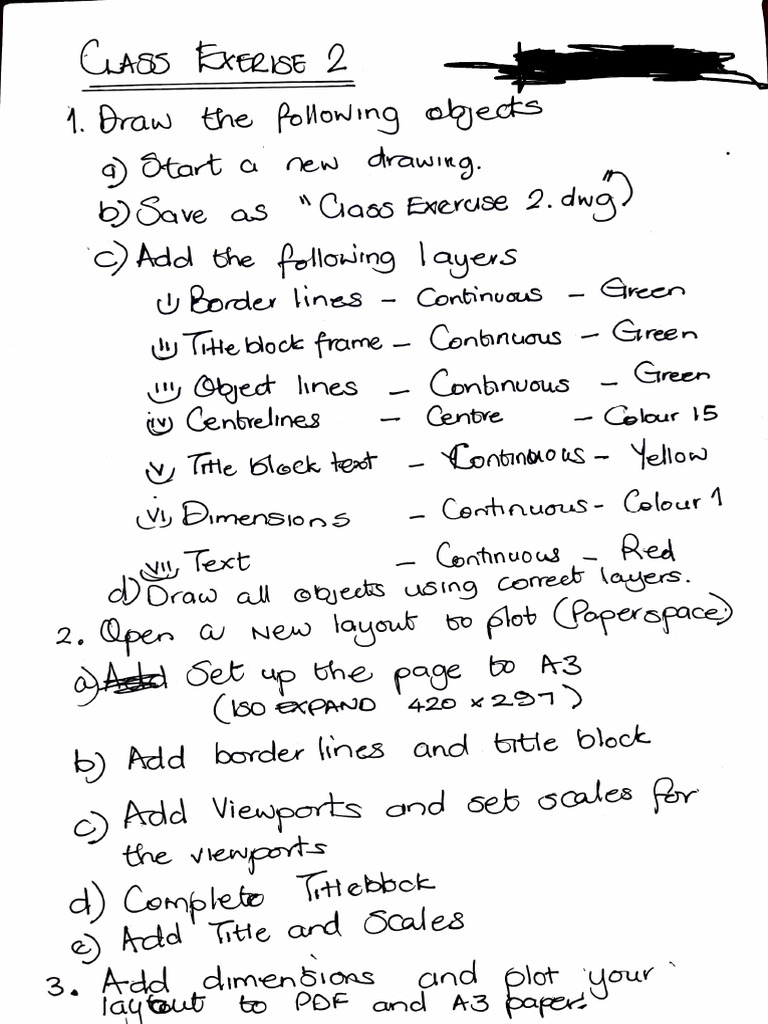 CLASS EXERISE 2
1. Draw the following objects
a) Start a new drawing.
b) Save as "Class Exercise 2.dwg")
c) Add the following layers
i) Border lines – Continuous – Green
ii) Title block frame – Continuous – Green
iii) Object lines – Continuous – Green
iv) Centrelines – Centre – Colour 15
v) Title block text – Continuous – Yellow
vi) Dimensions – Continuous – Colour 1
vii) Text – Continuous – Red
d) Draw all objects using correct layers.
2. Open a New layout to plot (Paperspace)
a) Set up the page to A3
(ISO EXPAND 420 x 297)
b) Add border lines and title block
c) Add Viewports and set scales for
the viewports
d) Complete Titleblock
e) Add Title and Scales
3. Add dimensions and plot your
layout to PDF and A3 paper.